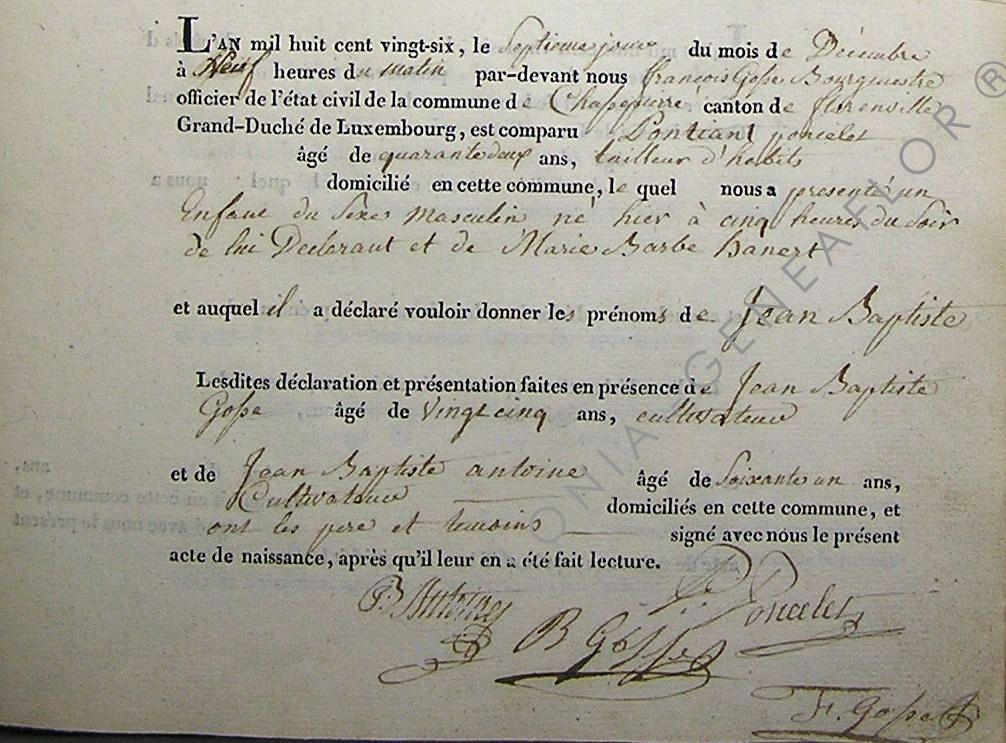 L'AN mil huit cent vingt-six, le Septieme jour du mois de Décembre
à Neuf heures du matin par-devant nous françois Gosse Bourguestre
officier de l'état civil de la commune de Chassepierre canton de florenville
Grand-Duché de Luxembourg, est comparu Pontiant poncelet
âgé de quarante deux ans, tailleur d'habits
domicilié en cette commune, le quel nous a presenté un
Enfant du Sexe Masculin né hier à cinq heures du Soir
de lui Declarant et de Marie Barbe hanert
et auquel il a déclaré vouloir donner les prénoms de Jean Baptiste
Lesdites déclaration et présentation faites en présence de Jean Baptiste
Gosse âgé de Vingt cinq ans, cultivateur
et de Jean Baptiste antoine âgé de Soixante un ans,
Cultivateur domiciliés en cette commune, et
ont les pere et temoins signé avec nous le présent
acte de naissance, après qu'il leur en a été fait lecture.
P. Poncelet
B Antoine
B Gosse
F. Gosse
GENEAFLOR ®